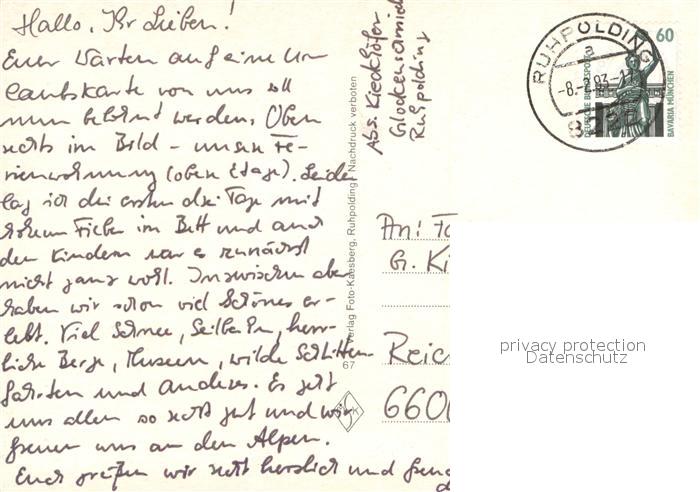 Hallo, Ihr Lieben!
Euer Warten auf eine Ur-
laubskarte von uns soll
nun belohnt werden. Oben
rechts im Bild - unsere Fe-
rienwohnung (obere Etage). Leider
lag ich die ersten drei Tage mit
hohem Fieber im Bett und auch
den Kindern war es zunächst
nicht ganz wohl. Inzwischen aber
haben wir schon viel Schönes er-
lebt. Viel Schnee, Seilbahn, herr-
liche Berge, Museum, wilde Schlitten-
fahrten und Anderes. Es geht
uns allen so recht gut und wir
freuen uns an den Alpen.
Euch grüßen wir recht herzlich und
Abs. Kieckhöfer
Glockenschmiede
Ruhpolding
Verlag Foto-Kaesberg, Ruhpolding · Nachdruck verboten
67
RUHPOLDING
a
-8.-2.93-17
60
DEUTSCHE BUNDESPOST
BAVARIA MÜNCHEN
An: Fa
G. Ki
Reic
660
privacy protection
Datenschutz